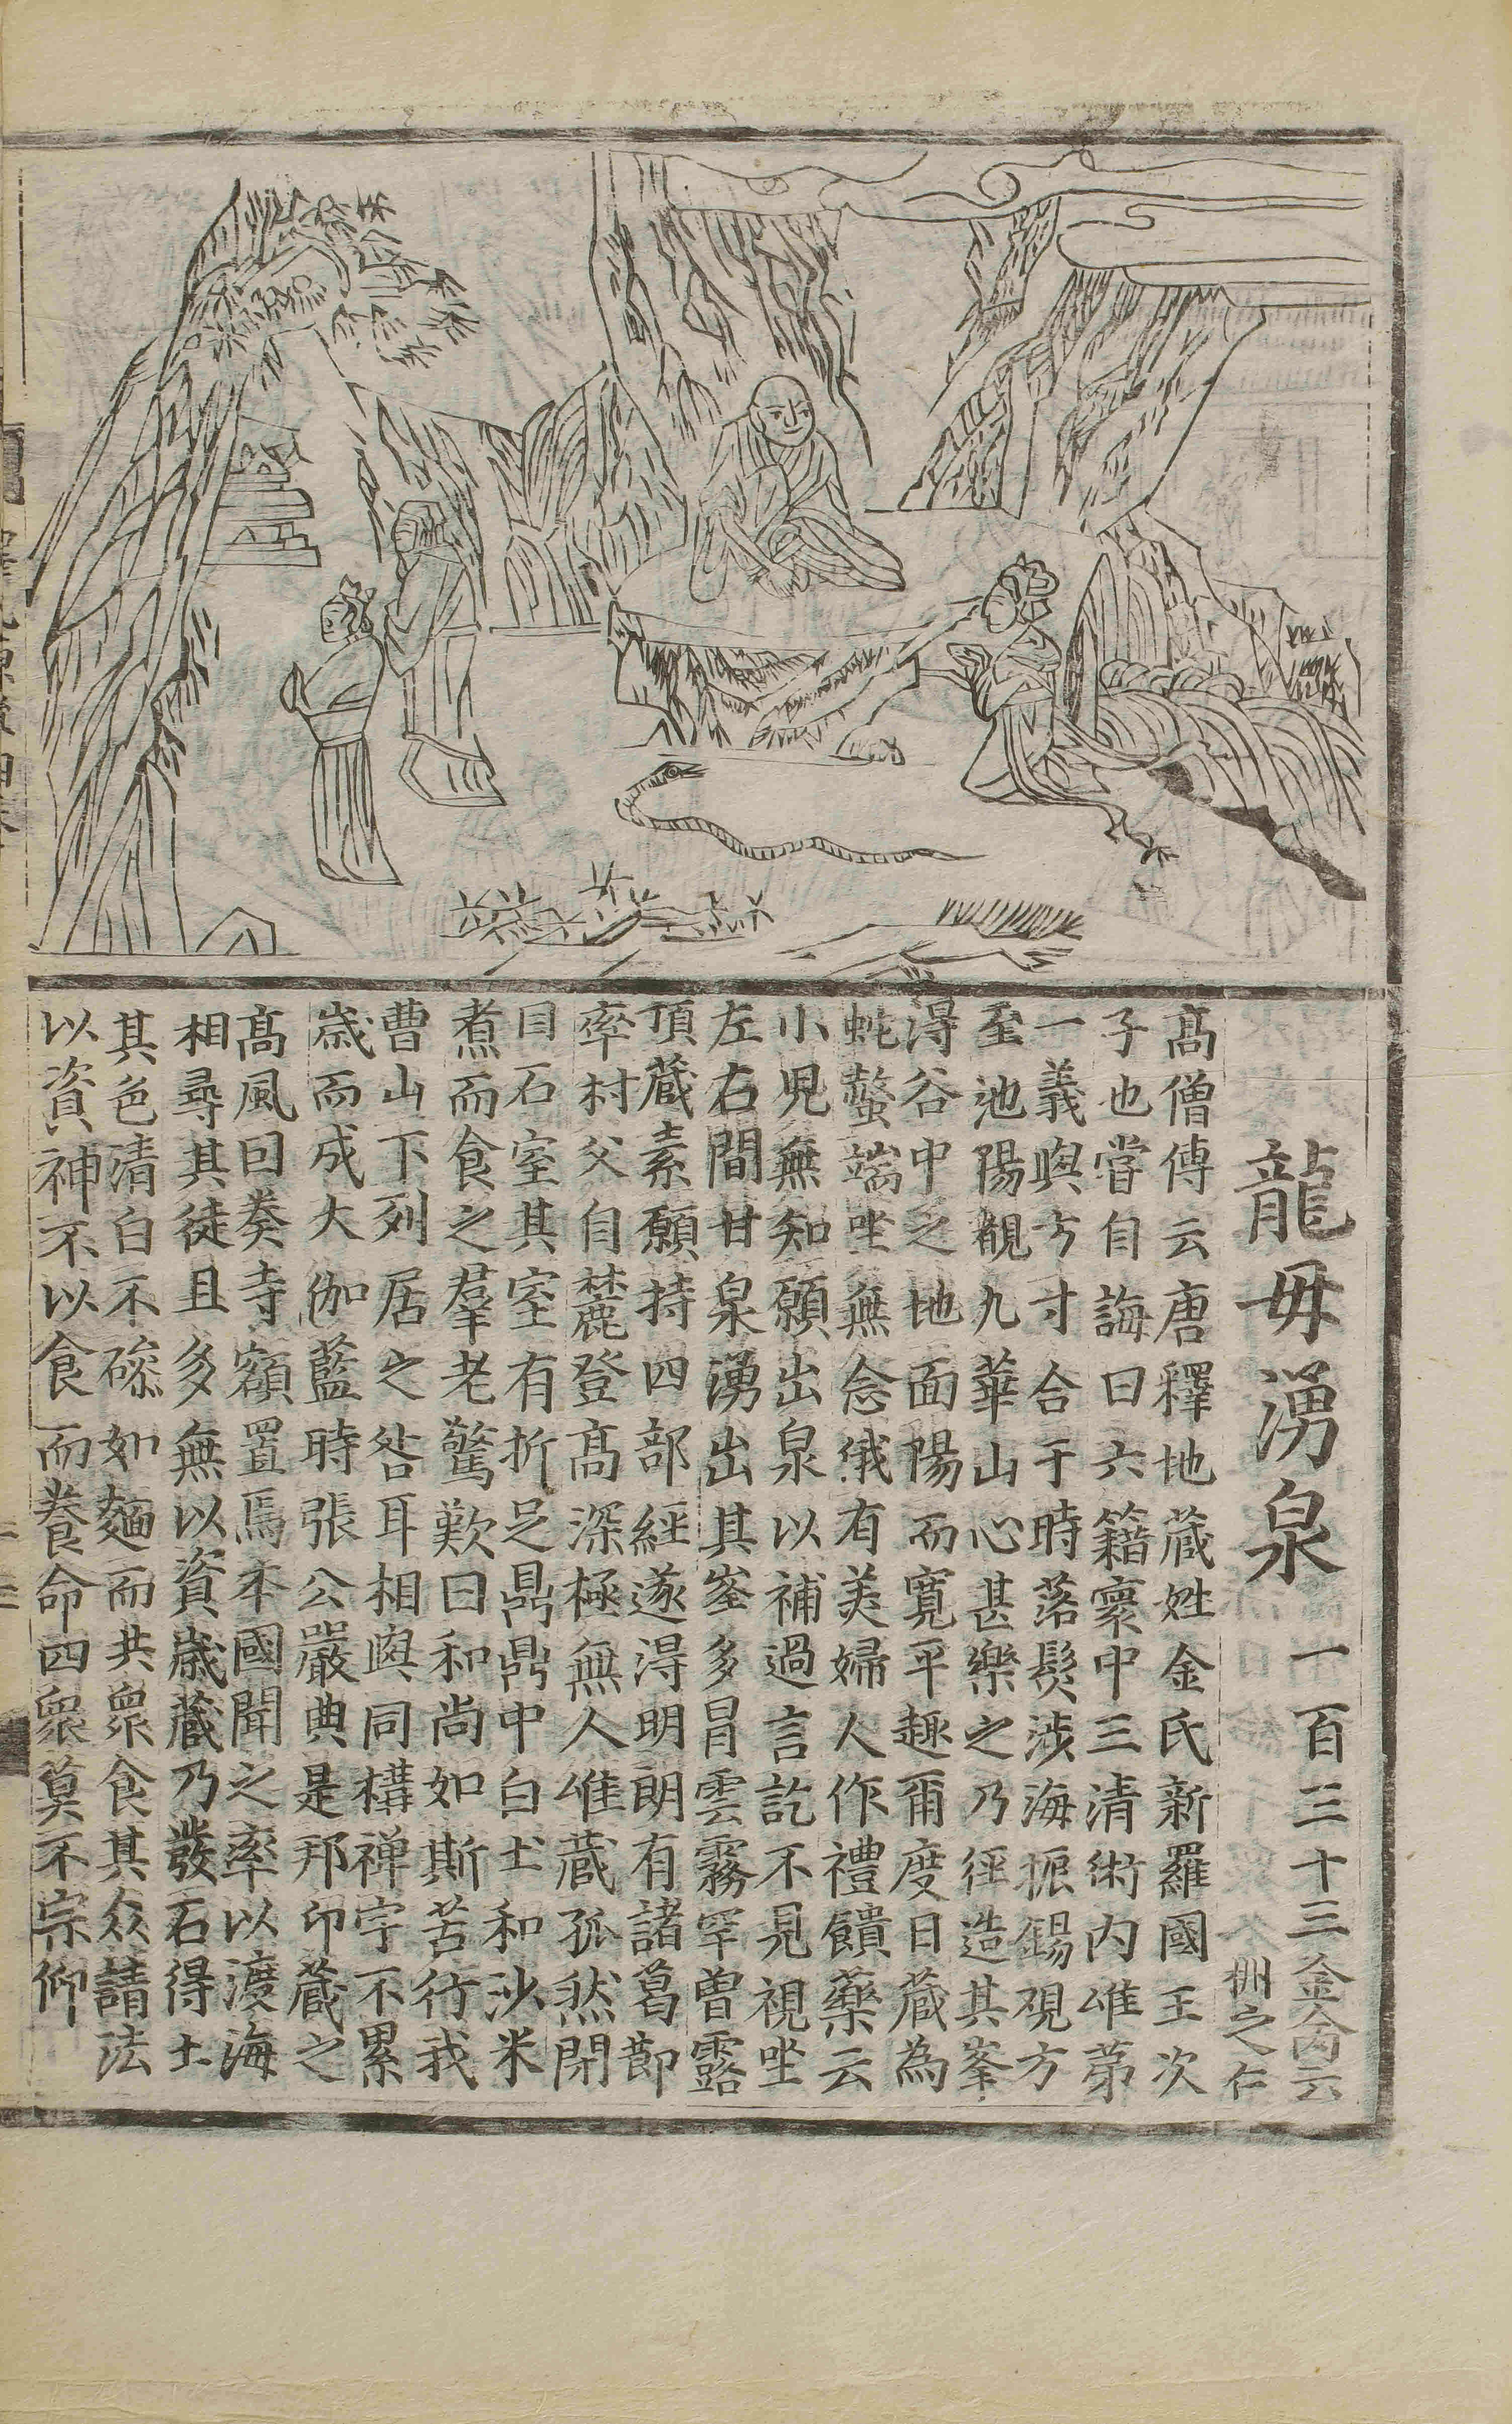 龍毋湧泉 一百三十三
金侖云
捌之仁
髙僧傳云唐釋地蔵姓金氏新羅國王次
子也嘗自誨曰六籍寰中三清術内唯苐
一義與方寸合于時落髮渉海振錫覌方
至池陽覩九華山心甚樂之乃徑造其峯
淂谷中之地面陽而寛平趣爾度日蔵為
蛇螫端坐無念俄有美婦人作禮饋藥云
小児無知願出泉以補過言訖不見視坐
左右間甘泉湧出其峯多冐雲霧罕曽露
頂蔵素願持四部經遂淂明朗有諸葛莭
率村父自麓登髙深極無人唯蔵孤然閉
目石室其室有折足鼎鼎中白土和沙米
煮而食之羣老驚歎曰和尚如斯苦行我
曹山下列居之咎耳相與同構禅宇不累
歳而成大伽藍時張公嚴典是邦仰蔵之
髙風囙奏寺額置焉本國聞之率以渡海
相尋其徒且多無以資歳蔵乃發石得土
其色清白不磣如麵而共衆食其众請法
以資神不以食而養命四衆莫不宗仰